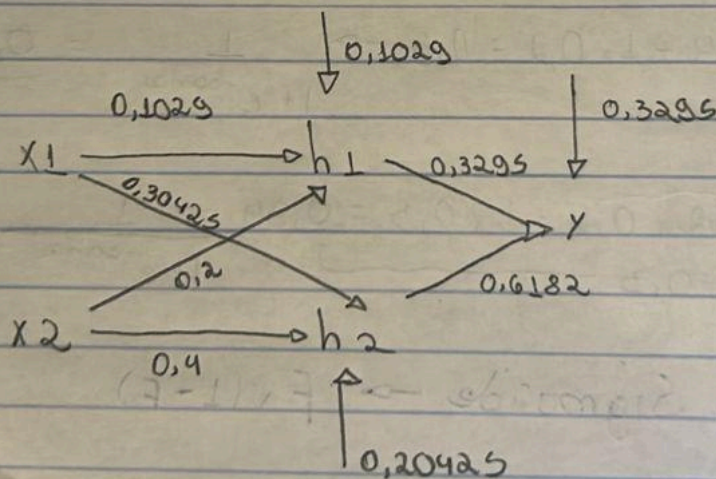 0,1029
0,1029
0,3295
x1
h1
0,3295
0,30425
y
0,2
0,6182
x2
h2
0,4
0,20425